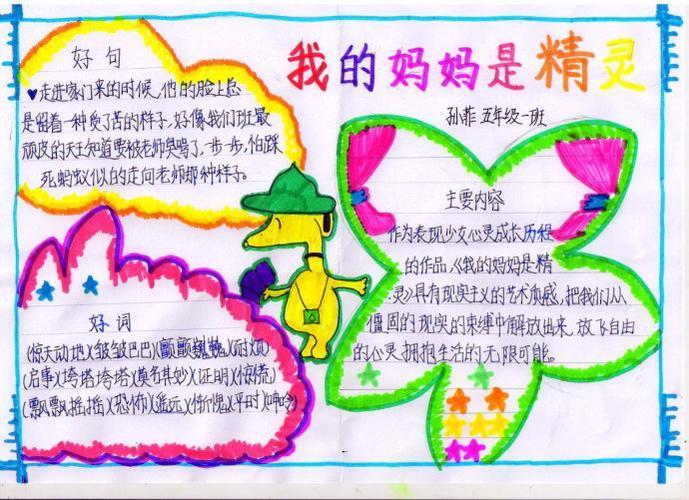 我的妈妈是精灵
孙菲 五年级一班
好句
走进家门来的时候,他的脸上总
是留着一种负了苦的样子,好像我们班最
顽皮的天王知道要被老师臭骂了,一步一步,怕踩
死蚂蚁似的走向老师那种样子。
主要内容
作为表现少女心灵成长历程
的作品《我的妈妈是精
灵》具有现实主义的艺术质感,把我们从
僵固的现实的束缚中解放出来,放飞自由
的心灵,拥抱生活的无限可能。
好词
(惊天动地)(皱皱巴巴)(颤颤巍巍)(耐烦)
(启事)(垮塔垮塔)(莫名其妙)(证明)(惊慌)
(飘飘摇摇)(恐怖)(遥远)(惭愧)(平时)(呻吟)